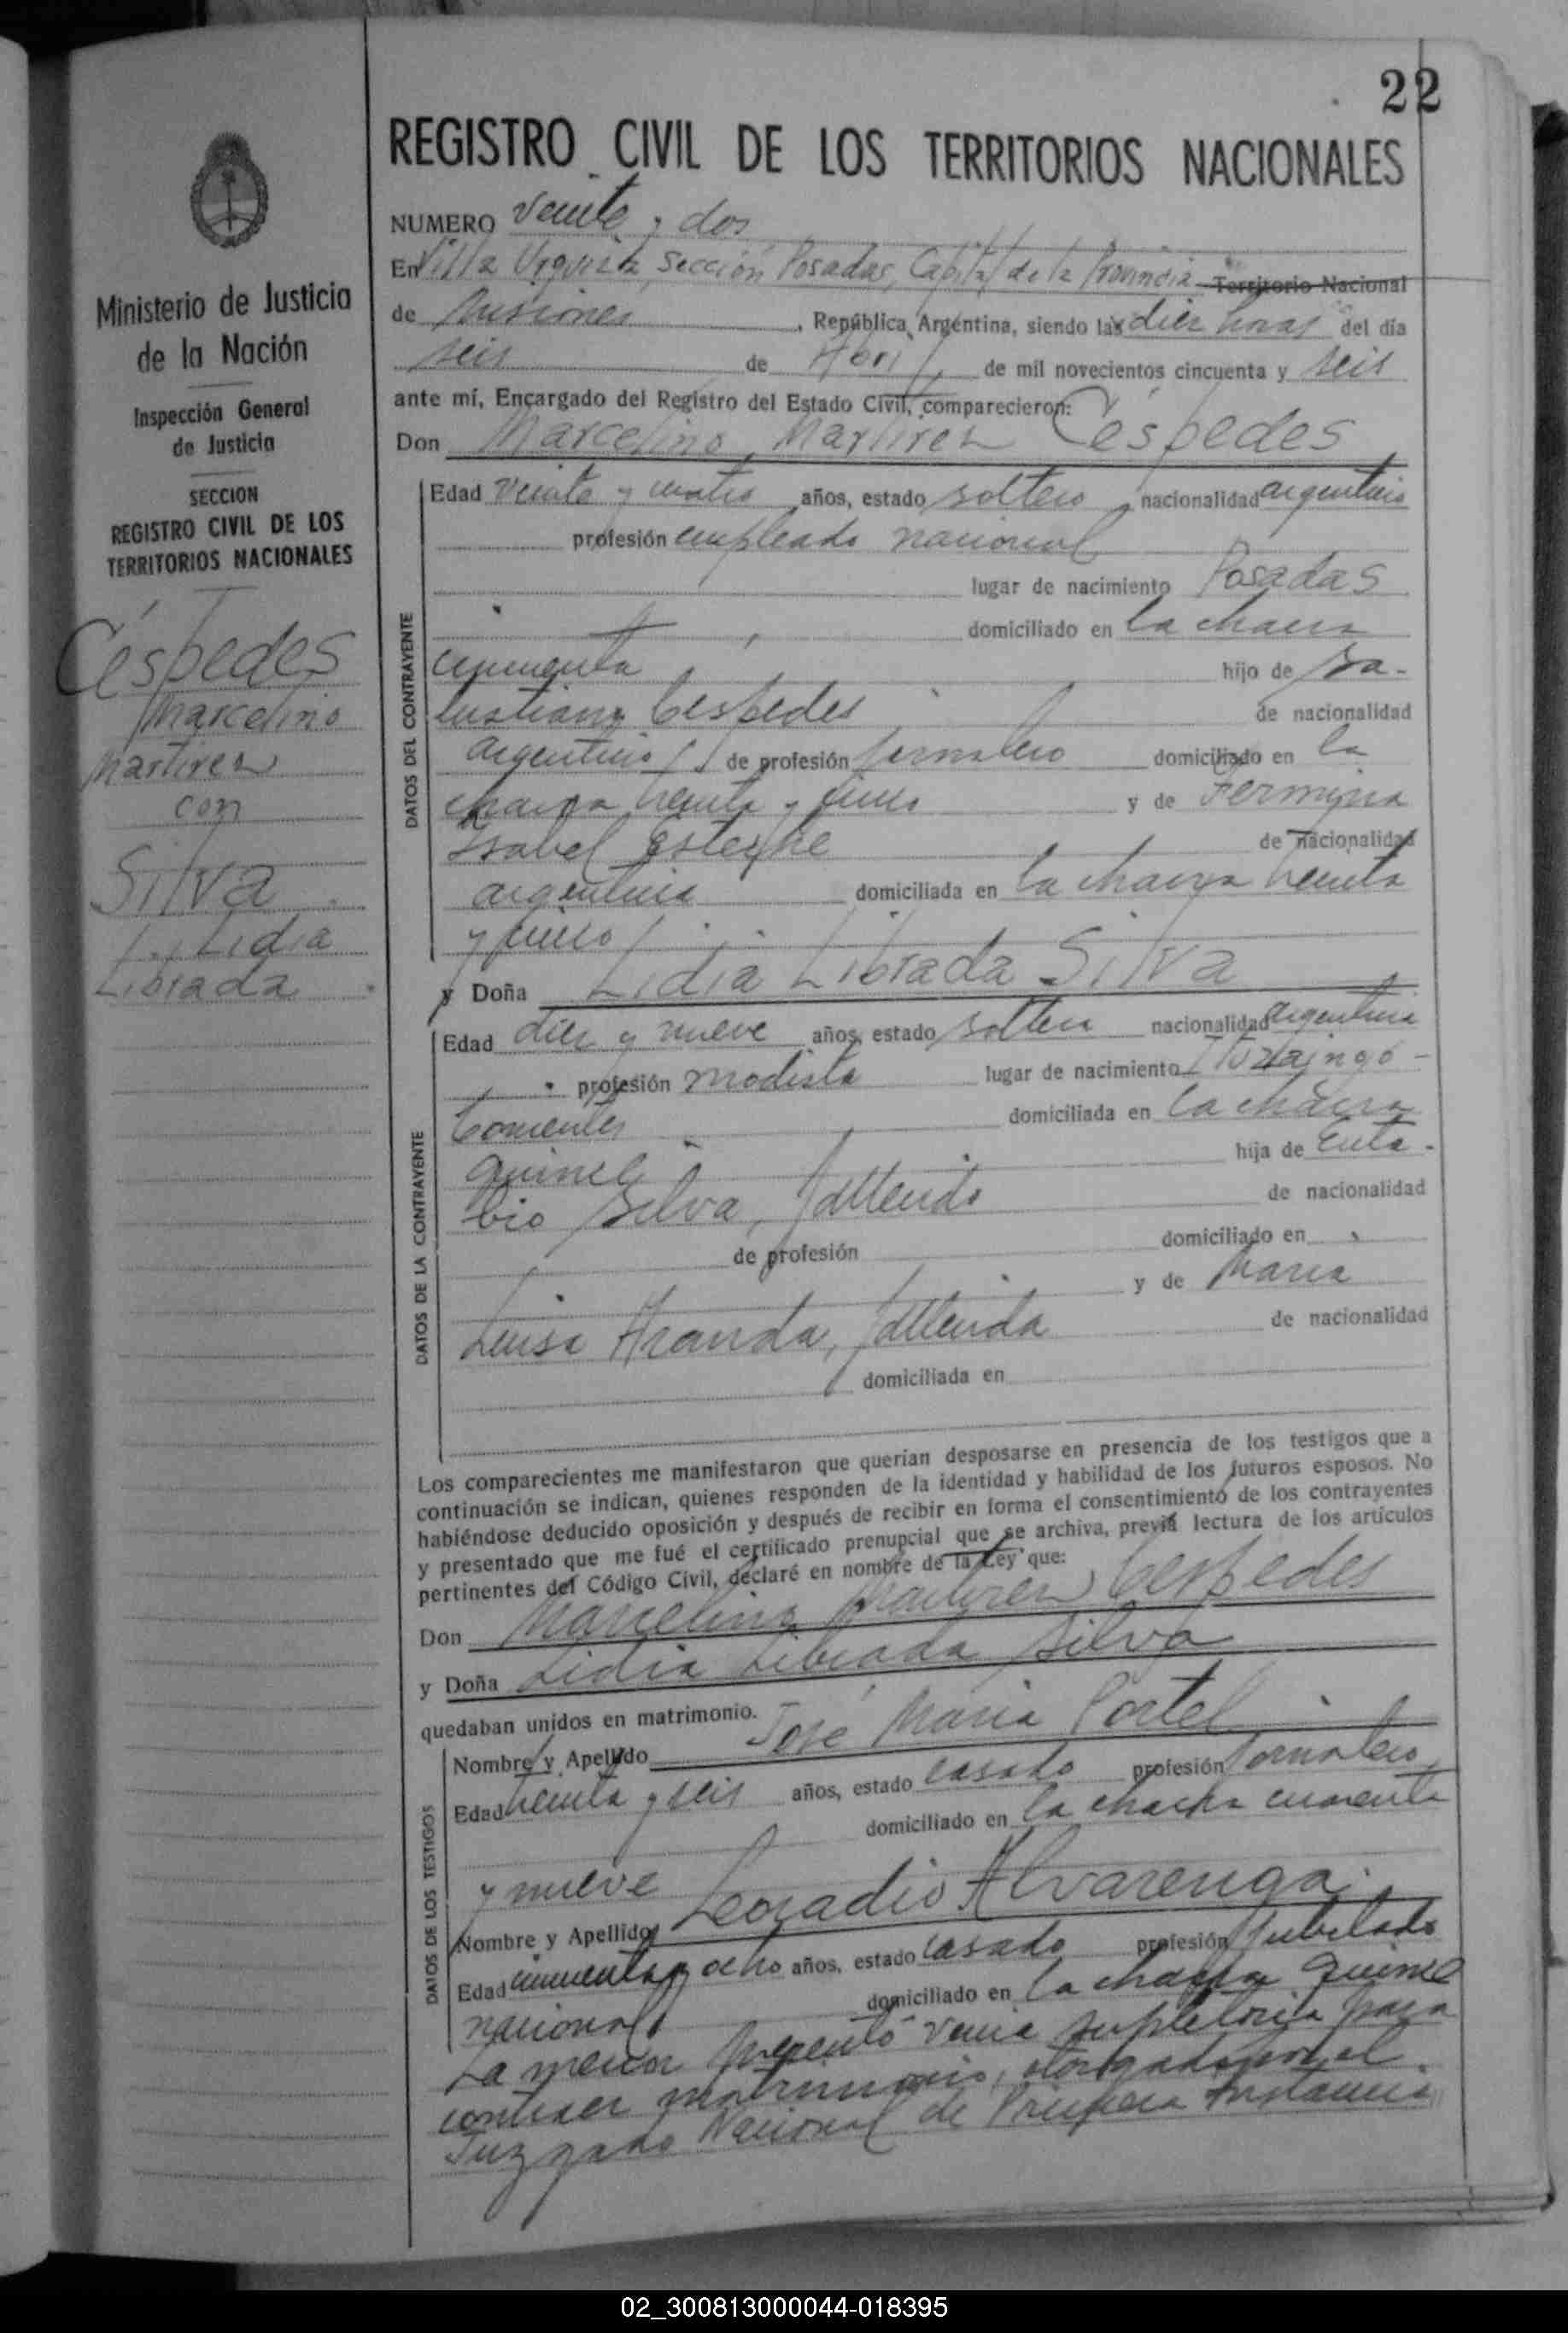 22
REGISTRO CIVIL DE LOS TERRITORIOS NACIONALES
NUMERO Veinte y dos
En Villa Urquiza, Sección Posadas, Capital de la Provincia Territorio Nacional
de Misiones, República Argentina, siendo las diez horas del día
seis de Abril de mil novecientos cincuenta y seis
ante mí, Encargado del Registro del Estado Civil, comparecieron:
Don Marcelino Martirez Céspedes
Edad veinte y cuatro años, estado soltero, nacionalidad argentino
profesión empleado nacional
lugar de nacimiento Posadas
domiciliado en la chacra
cincuenta hijo de Sa-
lustiano Cespedes de nacionalidad
argentino de profesión jornalero domiciliado en la
chacra treinta y cinco y de Fermina
Isabel de nacionalidad
argentina domiciliada en la chacra treinta
y cinco
y Doña Lidia Librada Silva
Edad diez y nueve años, estado soltera nacionalidad argentina
profesión modista lugar de nacimiento Ituzaingó -
Corrientes domiciliada en la chacra
quince hija de Euta-
bio Silva, fallecido de nacionalidad
de profesión domiciliado en
y de María
Luisa Aranda, fallecida de nacionalidad
domiciliada en
Los comparecientes me manifestaron que querían desposarse en presencia de los testigos que a
continuación se indican, quienes responden de la identidad y habilidad de los futuros esposos. No
habiéndose deducido oposición y después de recibir en forma el consentimiento de los contrayentes
y presentado que me fué el certificado prenupcial que se archiva, previa lectura de los artículos
pertinentes del Código Civil, declaré en nombre de la Ley que:
Don Marcelino Martirez Cespedes
y Doña Lidia Librada Silva
quedaban unidos en matrimonio.
Nombre y Apellido José María Portel
Edad treinta y seis años, estado casado profesión jornalero
domiciliado en la chacra cuarenta
y nueve
Nombre y Apellido Leocadio Alvarenga
Edad cincuenta y ocho años, estado casado profesión jubilado
nacional domiciliado en la chacra quince
La menor presentó venia supletoria para
contraer matrimonio, otorgada por el
Juzgado Nacional de Primera Instancia
DATOS DEL CONTRAYENTE
DATOS DE LA CONTRAYENTE
DATOS DE LOS TESTIGOS
Ministerio de Justicia
de la Nación
Inspección General
de Justicia
SECCION
REGISTRO CIVIL DE LOS
TERRITORIOS NACIONALES
Céspedes
Marcelino
Martirez
con
Silva
Lidia
Librada
02_300813000044-018395